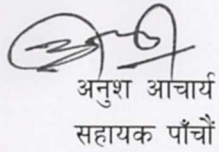 अनुश आचार्य
सहायक पाँचौं